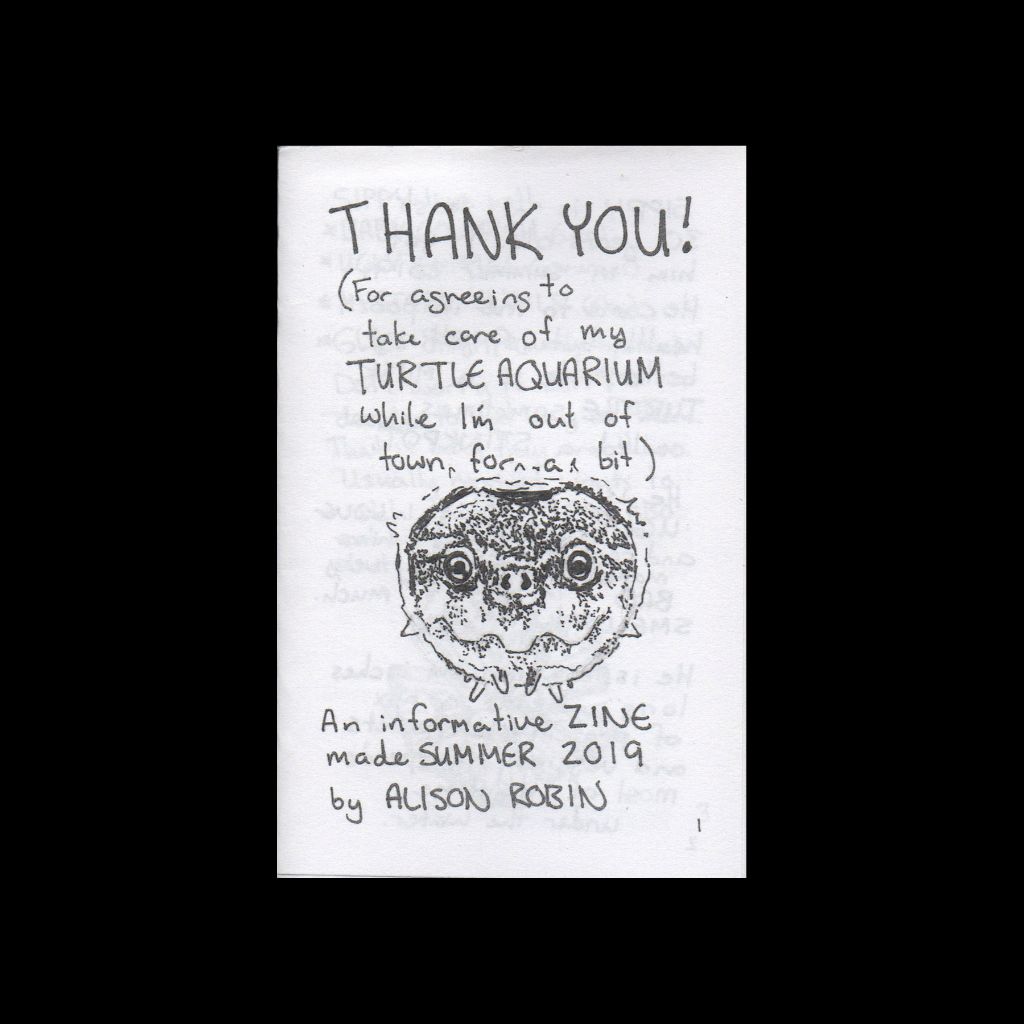 THANK YOU!
(For agreeing to
take care of my
TURTLE AQUARIUM
while I'm out of
town, for a bit)
An informative ZINE
made SUMMER 2019
by ALISON ROBIN
1